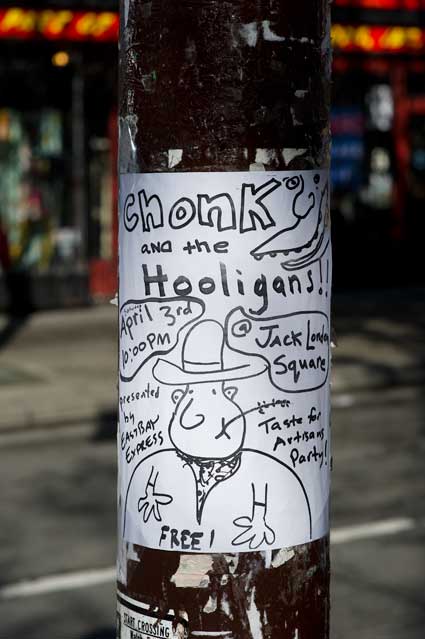 Chonk
and the
Hooligans!!
April 3rd
10:00PM
@
JACK London
Square
presented
by
EAST BAY
EXPRESS
Taste for
Artisans
Party!
FREE!
START CROSSING